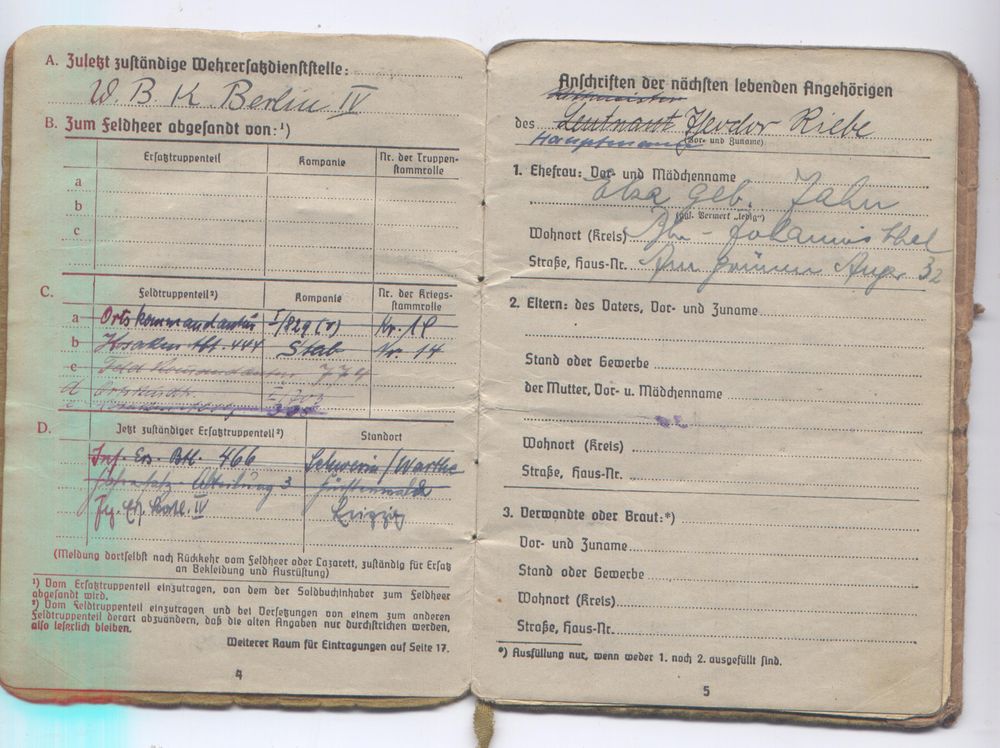 A. Zuletzt zuständige Wehrersatzdienststelle:
W. B K Berlin IV
B. Zum Feldheer abgesandt von:¹)
Ersatztruppenteil Kompanie Nr. der Truppenstammrolle
a
b
c
C. Feldtruppenteil²) Kompanie Nr. der Kriegsstammrolle
a Ortskommandantur I/829 (V) Nr. 18
b Kosaken Abt. 444 Stab Nr 14
c Feld Kommandantur 774
d Ortskdtr. I
D. Jetzt zuständiger Ersatztruppenteil²) Standort
Inf. Ers. Btl. 466 Schwerin/Warthe
Abteilung 3 Fürstenwalde
IV Leipzig
(Meldung dortselbst nach Rückkehr vom Feldheer oder Lazarett, zuständig für Ersatz
an Bekleidung und Ausrüstung)
¹) Vom Ersatztruppenteil einzutragen, von dem der Soldbuchinhaber zum Feldheer
abgesandt wird.
²) Vom Feldtruppenteil einzutragen und bei Versetzungen von einem zum anderen
Feldtruppenteil derart abzuändern, daß die alten Angaben nur durchstrichen werden,
also leserlich bleiben.
Weiterer Raum für Eintragungen auf Seite 17.
4
Anschriften der nächsten lebenden Angehörigen
Rittmeister
des Leutnant Theodor Riebe
Hauptmann (Vor- und Zuname)
1. Ehefrau: Vor- und Mädchenname
Elsa geb. Jahn
(ggf. Vermerk „ledig")
Wohnort (Kreis) Bln - Johannisthal
Straße, Haus-Nr. Am grünen Anger 32
2. Eltern: des Vaters, Vor- und Zuname
Stand oder Gewerbe
der Mutter, Vor- u. Mädchenname
Wohnort (Kreis)
Straße, Haus-Nr.
3. Verwandte oder Braut:*)
Vor- und Zuname
Stand oder Gewerbe
Wohnort (Kreis)
Straße, Haus-Nr.
*) Ausfüllung nur, wenn weder 1. noch 2. ausgefüllt sind.
5